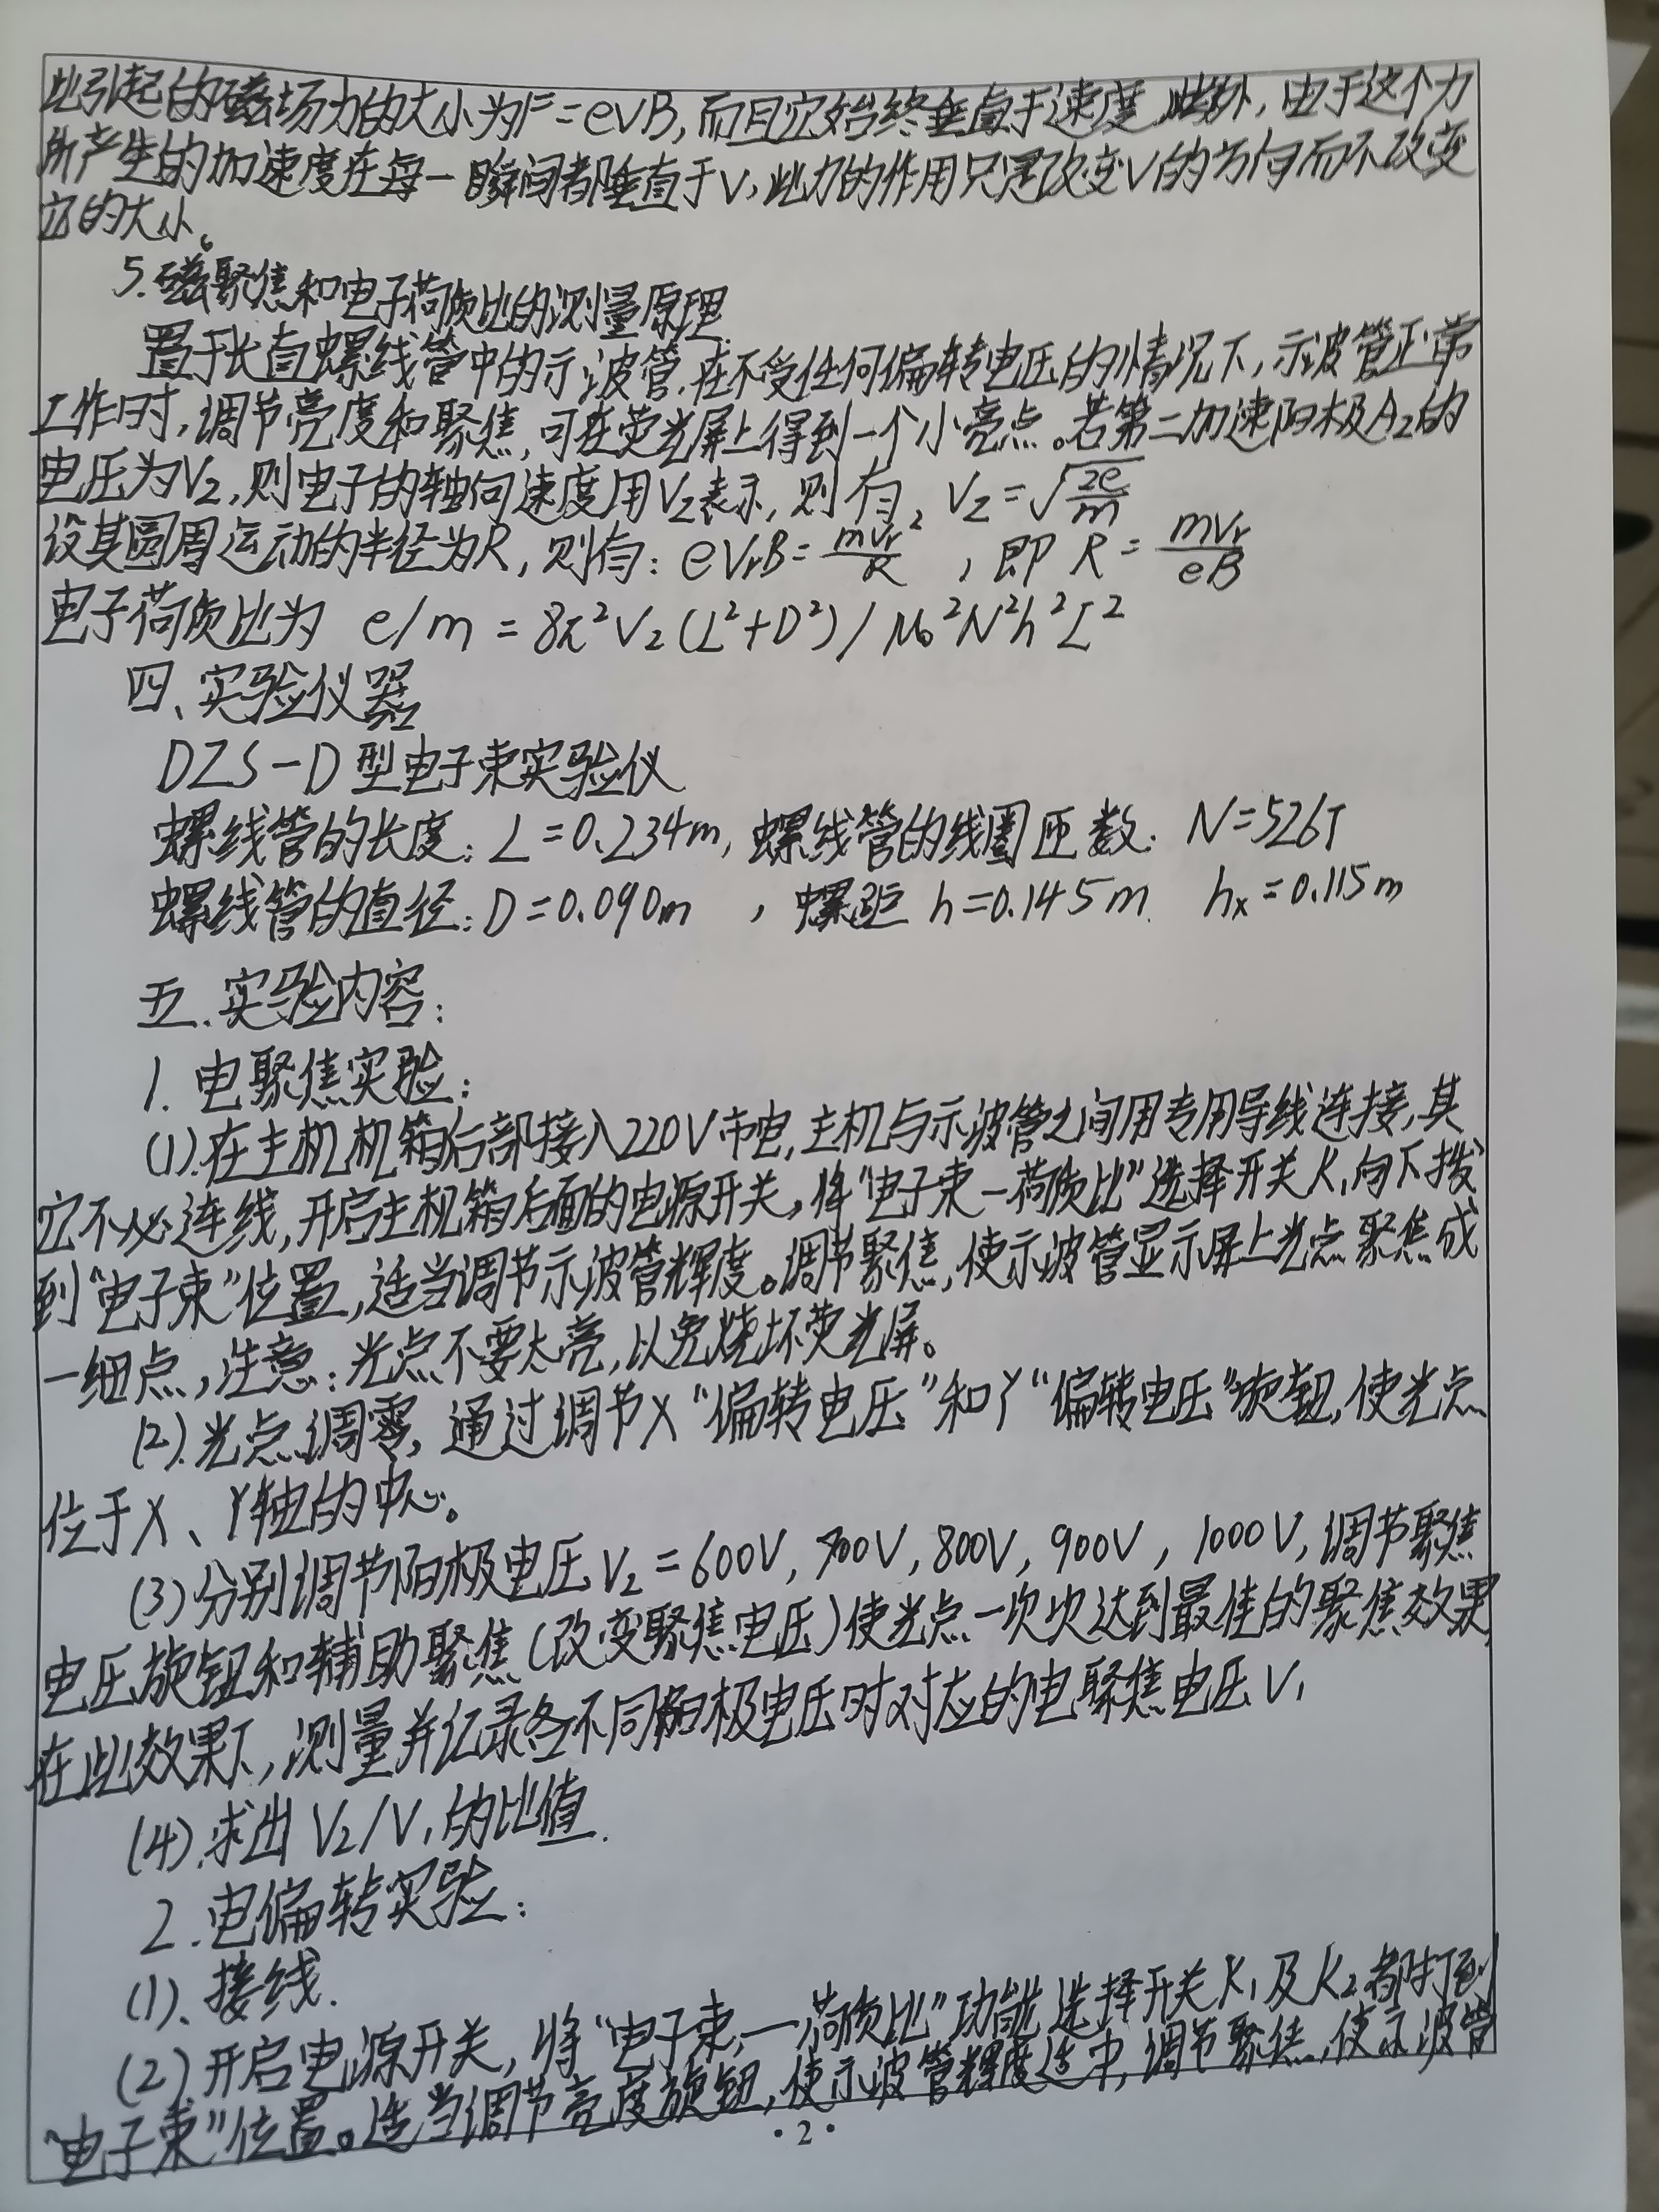 此引起的磁场力的大小为F=evB,而且它始终垂直于速度,此外,由于这个力
所产生的加速度在每一瞬间都垂直于V,此力的作用只是改变V的方向而不改变
它的大小。
5.磁聚焦和电子荷质比的测量原理
置于长直螺线管中的示波管,在不受任何偏转电压的情况下,示波管正常
工作时,调节亮度和聚焦,可在荧光屏上得到一个小亮点。若第二加速阳极A₂的
电压为V₂,则电子的轴向速度用Vz表示,则有,Vz=√(2e/m)
设其圆周运动的半径为R,则有:eVrB=mVr²/R,即 R=mVr/eB
电子荷质比为 e/m=8π²V₂(L²+D²)/μ₀²N²h²I²
四、实验仪器
DZS-D型电子束实验仪
螺线管的长度:L=0.234m,螺线管的线圈匝数:N=526T
螺线管的直径:D=0.090m,螺距 h=0.145m. hx=0.115m
五.实验内容:
1.电聚焦实验:
(1).在主机机箱后部接入220V市电,主机与示波管之间用专用导线连接,其
它不必连线,开启主机箱后面的电源开关,将“电子束-荷质比”选择开关K₁向下拨
到“电子束”位置,适当调节示波管辉度。调节聚焦,使示波管显示屏上光点聚焦成
一细点,注意:光点不要太亮,以免烧坏荧光屏。
(2).光点调零,通过调节X“偏转电压”和Y“偏转电压”旋钮,使光点
位于X、Y轴的中心。
(3)分别调节阳极电压V₂=600V,700V,800V,900V,1000V,调节聚焦
电压旋钮和辅助聚焦(改变聚焦电压)使光点一次次达到最佳的聚焦效果,
在此效果下,测量并记录各不同阳极电压时对应的电聚焦电压V₁
(4).求出V₂/V₁的比值.
2.电偏转实验:
(1).接线.
(2)开启电源开关,将“电子束-荷质比”功能选择开关K₁及K₂都打到
“电子束”位置。适当调节亮度旋钮,使示波管辉度适中,调节聚焦,使示波管
·2·